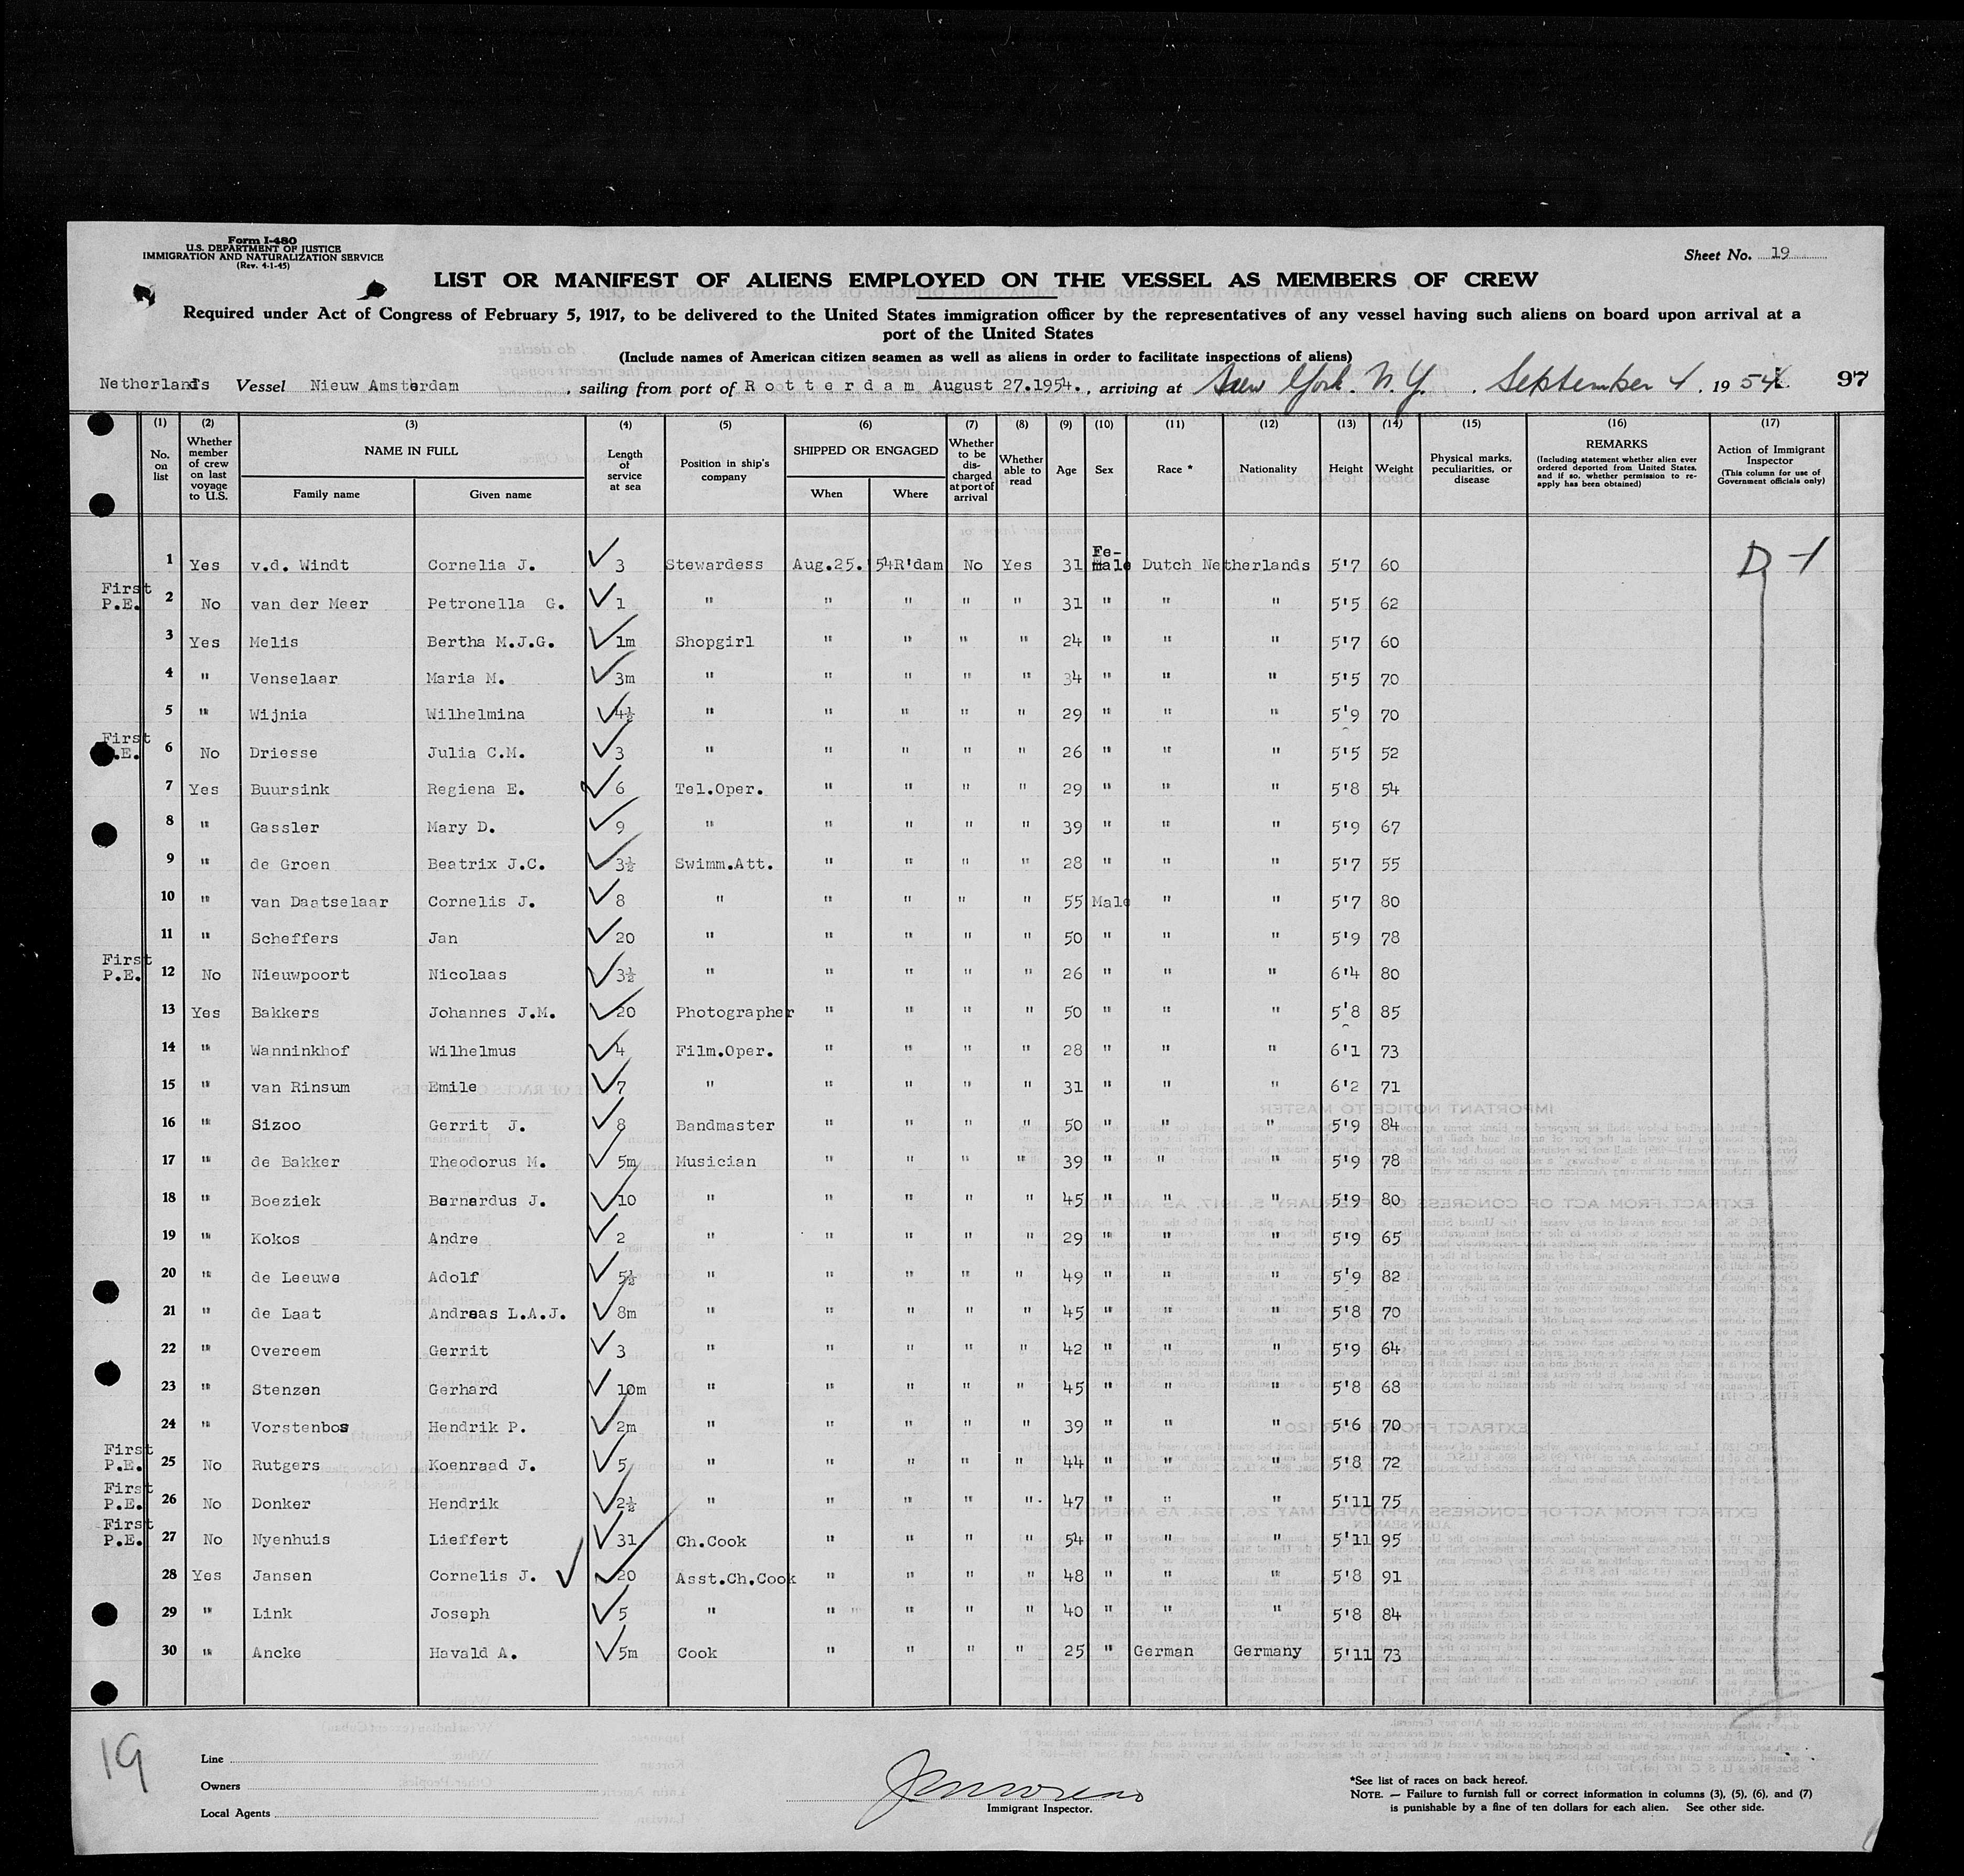 Form I-480
U.S. DEPARTMENT OF JUSTICE
IMMIGRATION AND NATURALIZATION SERVICE
(Rev. 4-1-45)
Sheet No. 19
LIST OR MANIFEST OF ALIENS EMPLOYED ON THE VESSEL AS MEMBERS OF CREW
Required under Act of Congress of February 5, 1917, to be delivered to the United States immigration officer by the representatives of any vessel having such aliens on board upon arrival at a
port of the United States
(Include names of American citizen seamen as well as aliens in order to facilitate inspections of aliens)
Netherlands Vessel Nieuw Amsterdam, sailing from port of Rotterdam August 27.1954., arriving at New York. N.Y., September 4, 1954. 97
(1) (2) (3) (4) (5) (6) (7) (8) (9) (10) (11) (12) (13) (14) (15) (16) (17)
No. on list Whether member of crew on last voyage to U.S. NAME IN FULL Family name Given name Length of service at sea Position in ship's company SHIPPED OR ENGAGED When Where Whether to be discharged at port of arrival Whether able to read Age Sex Race * Nationality Height Weight Physical marks, peculiarities, or disease REMARKS (Including statement whether alien ever ordered deported from United States, and if so, whether permission to re-apply has been obtained) Action of Immigrant Inspector (This column for use of Government officials only)
1 Yes v.d. Windt Cornelia J. 3 Stewardess Aug.25.'54 R'dam No Yes 31 Fe-male Dutch Netherlands 5'7 60 D-1
First P.E. 2 No van der Meer Petronella G. 1 " " " " " 31 " " " 5'5 62
3 Yes Melis Bertha M.J.G. 1m Shopgirl " " " " 24 " " " 5'7 60
4 " Venselaar Maria M. 3m " " " " " 34 " " " 5'5 70
5 " Wijnia Wilhelmina 4½ " " " " " 29 " " " 5'9 70
First P.E. 6 No Driesse Julia C.M. 3 " " " " " 26 " " " 5'5 52
7 Yes Buursink Regiena E. 6 Tel.Oper. " " " " 29 " " " 5'8 54
8 " Gassler Mary D. 9 " " " " " 39 " " " 5'9 67
9 " de Groen Beatrix J.C. 3½ Swimm.Att. " " " " 28 " " " 5'7 55
10 " van Daatselaar Cornelis J. 8 " " " " " 55 Male " " 5'7 80
11 " Scheffers Jan 20 " " " " " 50 " " " 5'9 78
First P.E. 12 No Nieuwpoort Nicolaas 3½ " " " " " 26 " " " 6'4 80
13 Yes Bakkers Johannes J.M. 20 Photographer " " " " 50 " " " 5'8 85
14 " Wanninkhof Wilhelmus 4 Film.Oper. " " " " 28 " " " 6'1 73
15 " van Rinsum Emile 7 " " " " " 31 " " " 6'2 71
16 " Sizoo Gerrit J. 8 Bandmaster " " " " 50 " " " 5'9 84
17 " de Bakker Theodorus M. 5m Musician " " " " 39 " " " 5'9 78
18 " Boeziek Bernardus J. 10 " " " " " 45 " " " 5'9 80
19 " Kokos Andre 2 " " " " " 29 " " " 5'9 65
20 " de Leeuwe Adolf 5½ " " " " " 49 " " " 5'9 82
21 " de Laat Andreas L.A.J. 8m " " " " " 45 " " " 5'8 70
22 " Overeem Gerrit 3 " " " " " 42 " " " 5'9 64
23 " Stenzen Gerhard 10m " " " " " 45 " " " 5'8 68
24 " Vorstenbos Hendrik P. 2m " " " " " 39 " " " 5'6 70
First P.E. 25 No Rutgers Koenraad J. 5 " " " " " 44 " " " 5'8 72
First P.E. 26 No Donker Hendrik 2½ " " " " " 47 " " " 5'11 75
First P.E. 27 No Nyenhuis Lieffert 31 Ch.Cook " " " " 54 " " " 5'11 95
28 Yes Jansen Cornelis J. 20 Asst.Ch.Cook " " " " 48 " " " 5'8 91
29 " Link Joseph 5 " " " " " 40 " " " 5'8 84
30 " Ancke Havald A. 5m Cook " " " " 25 " German Germany 5'11 73
19
Line
Owners
Local Agents
Immigrant Inspector.
*See list of races on back hereof.
NOTE. — Failure to furnish full or correct information in columns (3), (5), (6), and (7)
is punishable by a fine of ten dollars for each alien. See other side.